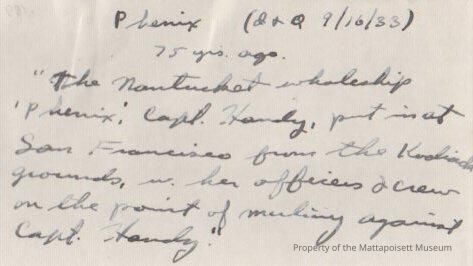 Phenix (I & Q 9/16/33)
75 yrs. ago.
"The Nantucket whaleship
'Phenix,' Capt. Handy, put in at
San Francisco from the Kodiack
grounds, w. her officers & crew
on the point of mutiny against
Capt. Handy."
Property of the Mattapoisett Museum